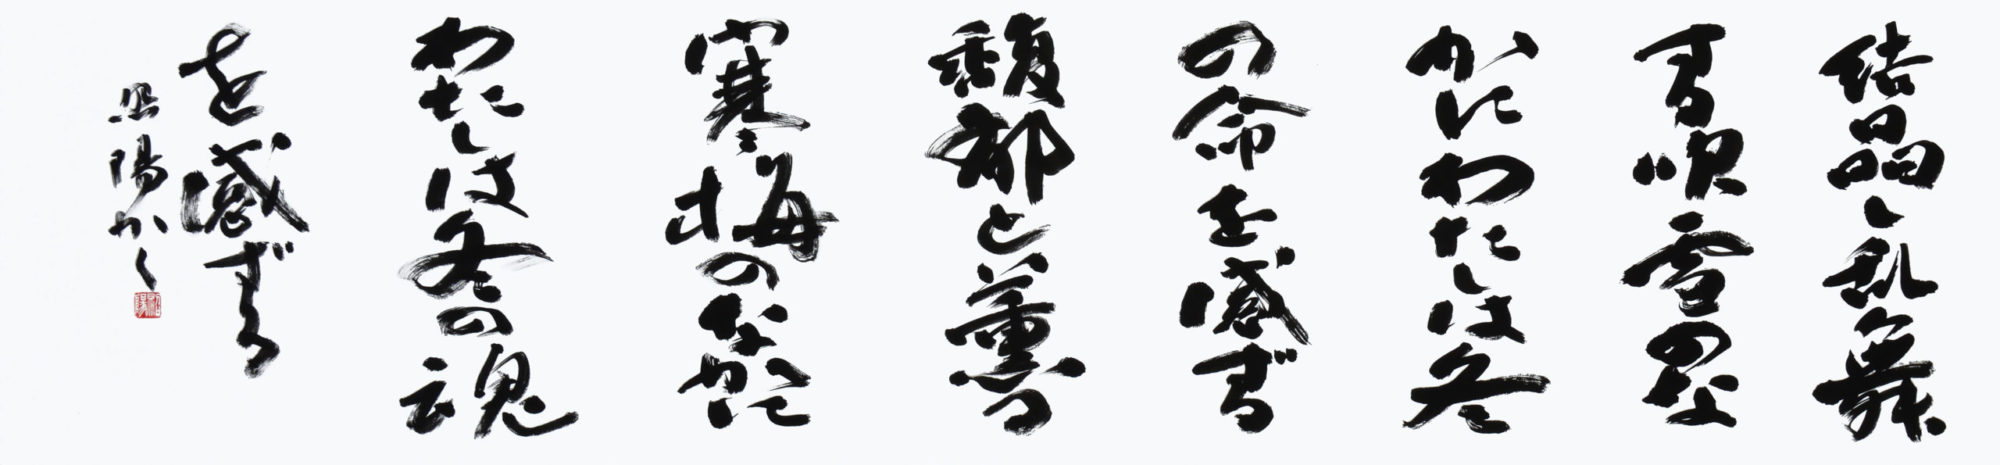 結晶し乱舞
する吹雪のな
かにわたしは冬
の命を感ずる
馥郁と薫る
寒梅のなかに
わたしは冬の魂
を感ずる
陽かく